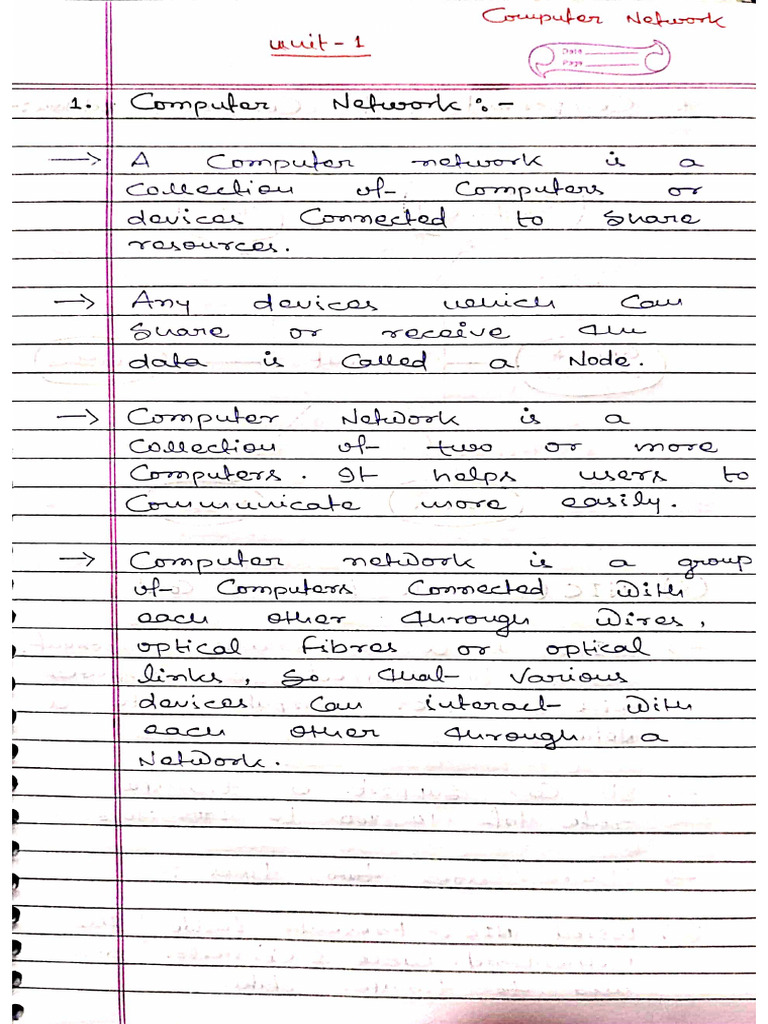 Computer Network
Unit - 1
Date
Page
1. Computer Network :-
→ A Computer network is a
Collection of Computers or
devices Connected to share
resources.
→ Any devices which Can
share or receive the
data is Called a Node.
→ Computer Network is a
Collection of two or more
Computers. It helps users to
Communicate more easily.
→ Computer network is a group
of Computers Connected With
each other through Wires,
optical fibres or optical
links, So that Various
devices Can interact With
each other through a
Network.